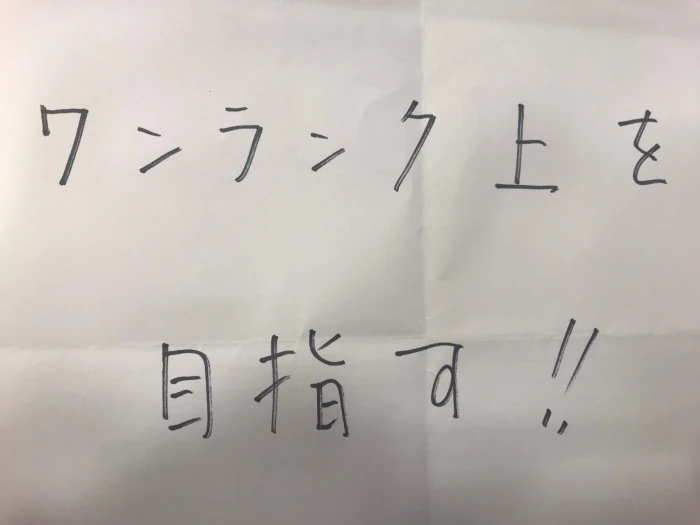 ワンランク上を
目指す!!